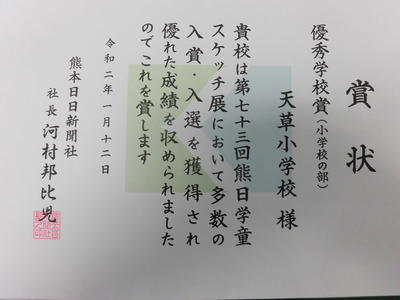 賞状
優秀学校賞(小学校の部)
天草小学校 様
貴校は第七十三回熊日学童
スケッチ展において多数の
入賞・入選を獲得され
優れた成績を収められました
のでこれを賞します
令和二年一月十二日
熊本日日新聞社
社長 河村邦比児